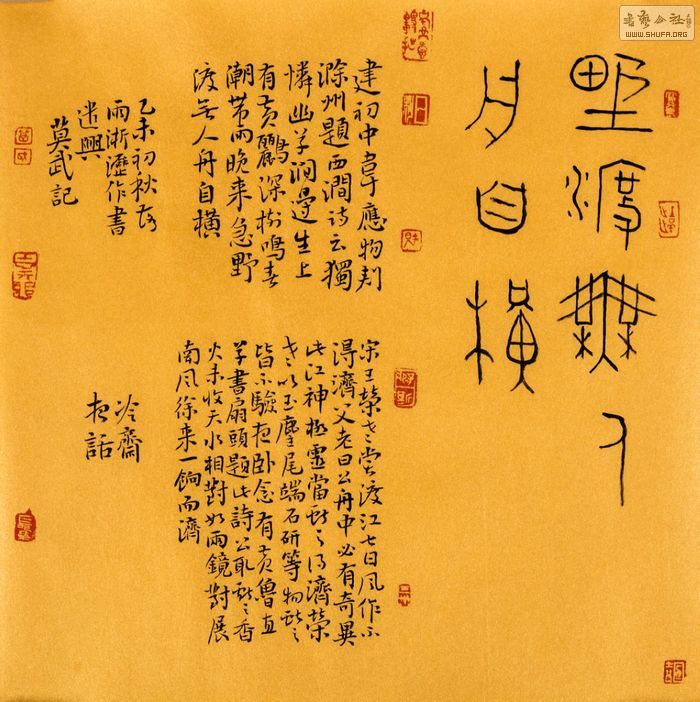 書藝公社
WWW.SHUFA.ORG
野渡無人
舟自橫
建初中韋應物判
滁州題西澗詩云獨
憐幽草澗邊生上
有黃鸝深樹鳴春
潮帶雨晚來急野
渡无人舟自橫
宋王榮老嘗渡江七日風作不
得濟父老曰公舟中必有奇異
此江神極靈當獻之得濟榮
老以玉麈尾端石研等物獻之
皆不驗夜臥念有黃魯直
草書扇頭題此詩公取獻之香
火未收天水相對如兩鏡對展
南風徐來一餉而濟
冷齋
夜話
乙未初秋夜
雨淅瀝作書
遣興
莫武記